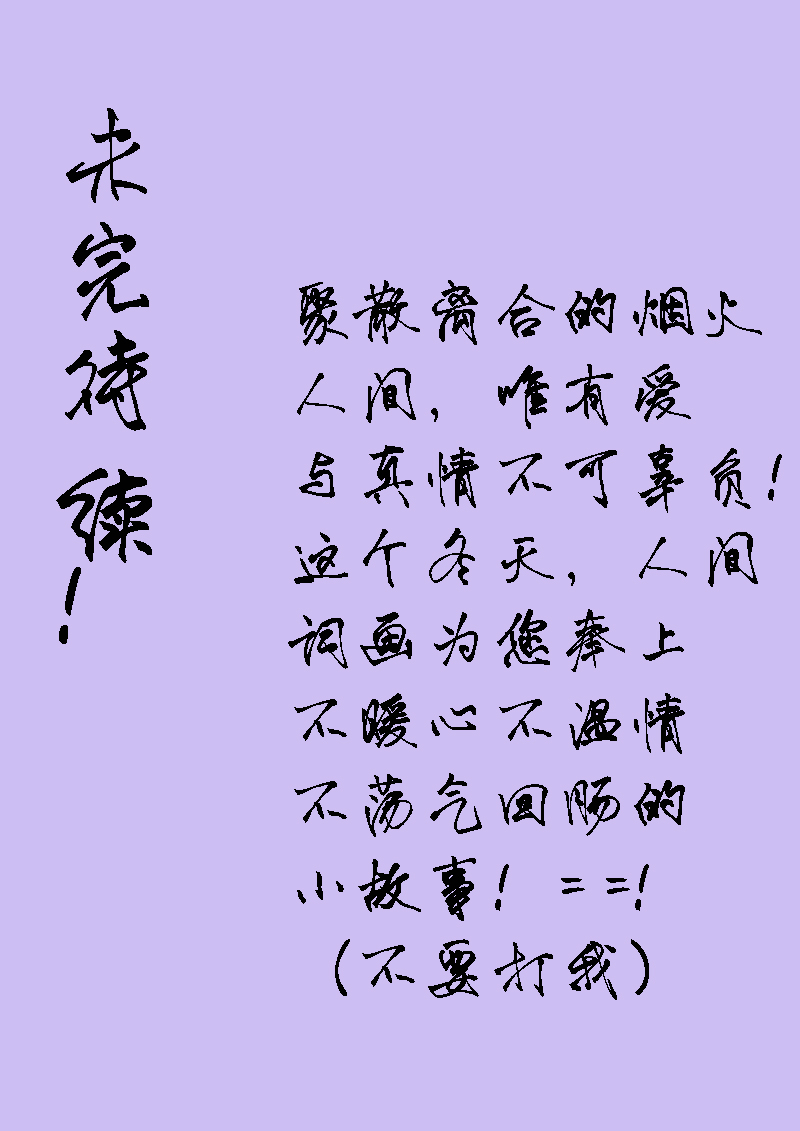 未完待续！
聚散离合的烟火
人间，唯有爱
与真情不可辜负！
这个冬天，人间
词画为您奉上
不暖心不温情
不荡气回肠的
小故事！==！
（不要打我）